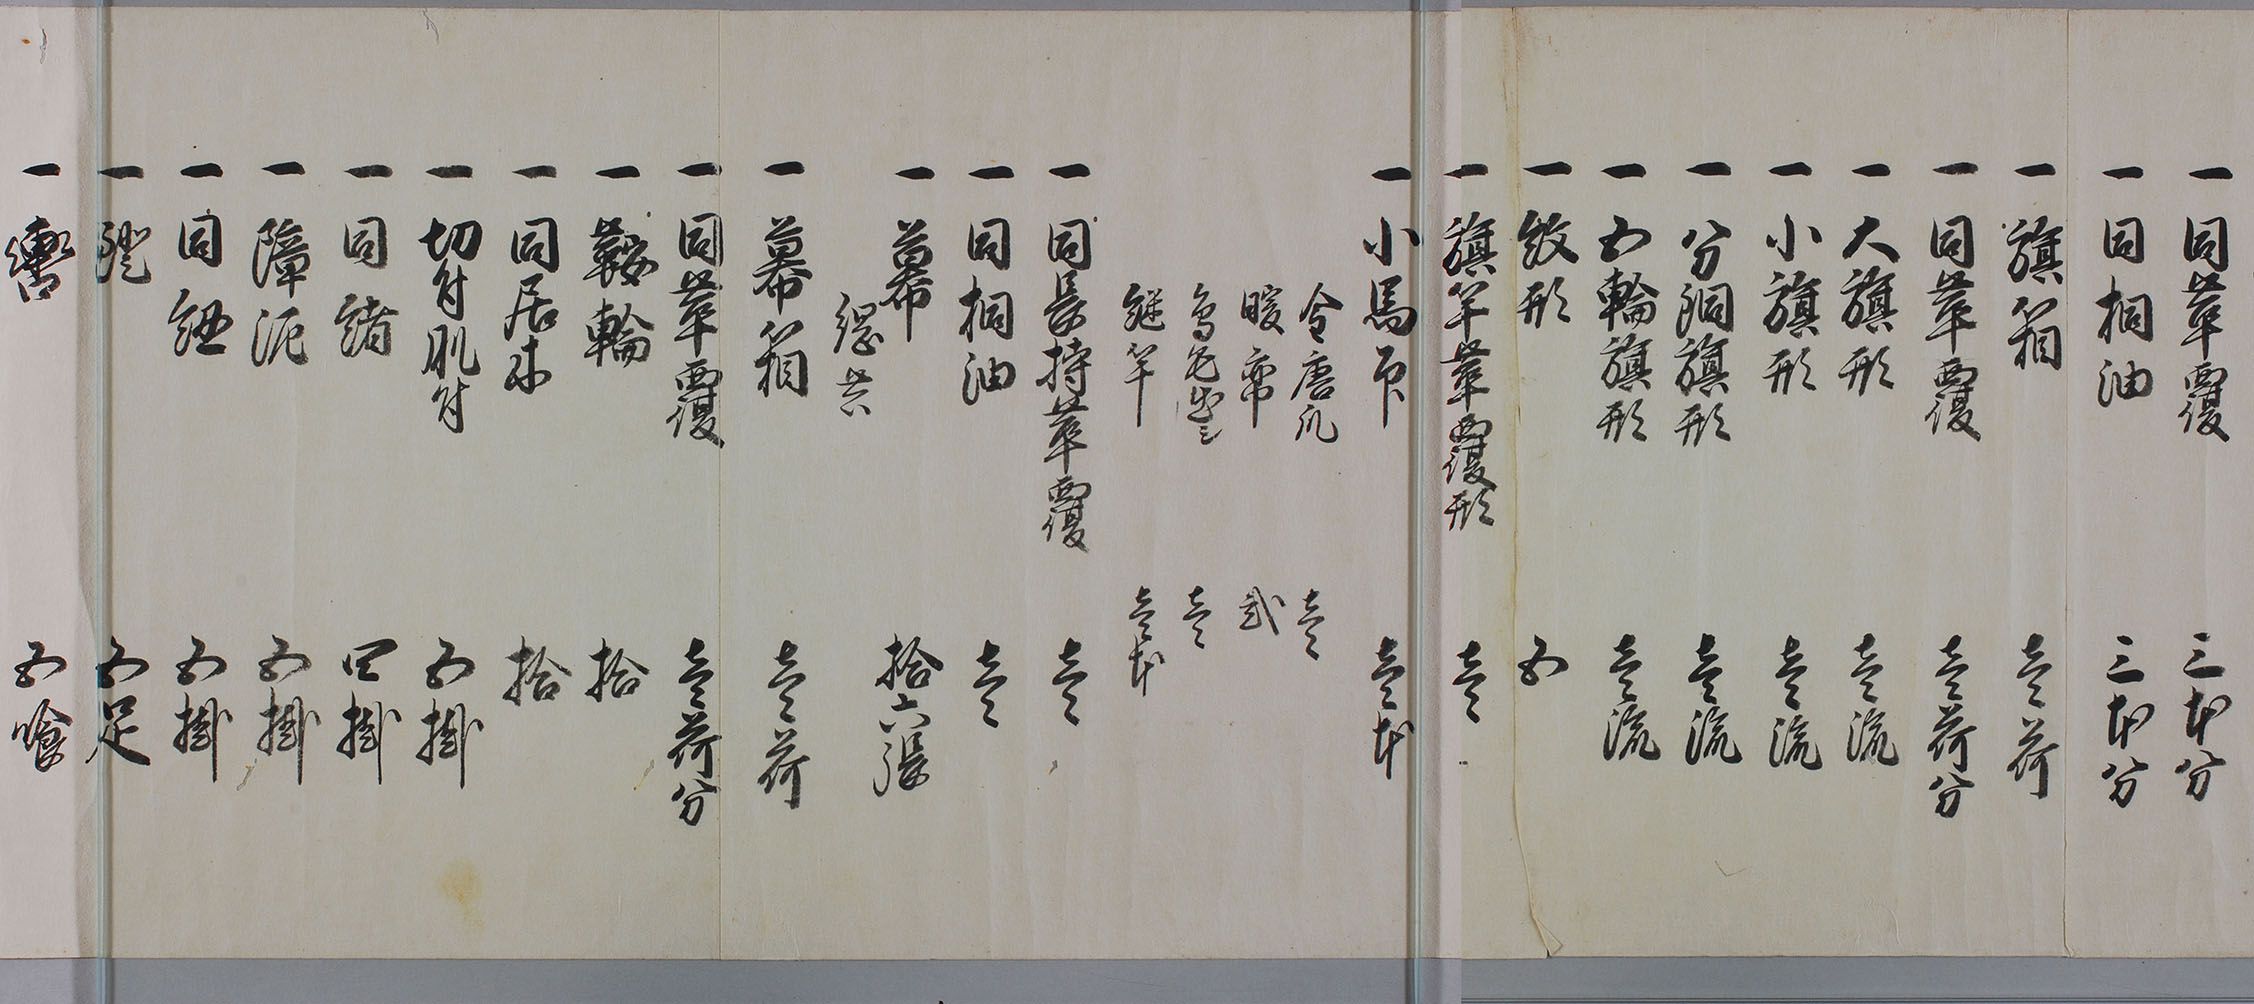 一同葦覆 三本分
一同桐油 三本分
一旗箱 壱荷
一同葦覆 壱荷分
一大旗形 壱流
一小旗形 壱流
一分銅旗形 壱流
一五輪旗形 壱流
一紋形 五
一旗竿葦覆形 壱
一小馬印 壱本
令唐瓜 壱
暖帘 弐
鳥毛 壱
継竿 壱本
一同長持葦覆 壱
一同桐油 壱
一幕 拾六張
縄共
一幕箱 壱荷
一同葦覆 壱荷分
一鞍輪 拾
一同居木 拾
一切付肌付 五掛
一同緒 四掛
一障泥 五掛
一同紐 五掛
一鐙 五足
一轡 五喰